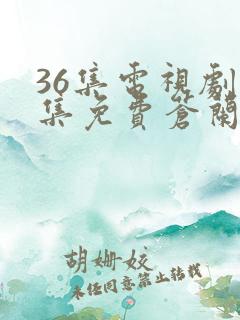 36集电視劇
集免費蒼蘭
胡姗姣
未经同意禁止转载